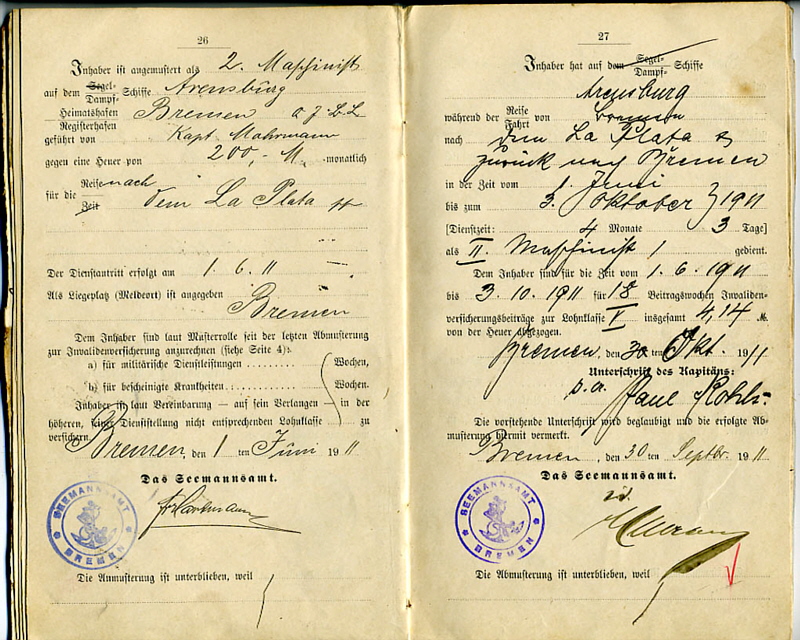 26
Inhaber ist angemustert als 2. Maschinist
auf dem Segel- Dampf- Schiffe Arensburg
Heimatshafen Registerhafen Bremen
geführt von Kapt. Mohrmann
gegen eine Heuer von 200,- M. monatlich
für die Reise Zeit nach dem La Plata
Der Dienstantritt erfolgt am 1. 6. 11
Als Liegeplatz (Meldeort) ist angegeben
Bremen
Dem Inhaber sind laut Musterrolle seit der letzten Abmusterung
zur Invalidenversicherung anzurechnen (siehe Seite 4):
a) für militärische Dienstleistungen . . . . . . . . . . Wochen,
b) für bescheinigte Krankheiten . . . . . . . . . . Wochen.
Inhaber ist laut Vereinbarung — auf sein Verlangen — in der
höheren, seiner Dienststellung nicht entsprechenden Lohnklasse zu
versichern.
Bremen, den 1 ten Juni 1911
Das Seemannsamt.
SEEMANNSAMT BREMEN
Die Anmusterung ist unterblieben, weil
27
Inhaber hat auf dem Segel- Dampf- Schiffe
Arensburg
während der Reise Fahrt von Bremen
nach dem La Plata &
zurück nach Bremen
in der Zeit vom 1. Juni
bis zum 3. Oktober } 1911
[Dienstzeit: 4 Monate 3 Tage]
als II. Maschinist gedient.
Dem Inhaber sind für die Zeit vom 1. 6. 1911
bis 3. 10. 1911 für 18 Beitragswochen Invaliden-
versicherungsbeiträge zur Lohnklasse V insgesamt 4,14 M.
von der Heuer abgezogen.
Bremen, den 30 ten Okt. 1911
Unterschrift des Kapitäns:
p. a. Paul
Die vorstehende Unterschrift wird beglaubigt und die erfolgte Ab-
musterung hiermit vermerkt.
Bremen, den 30 ten Septbr. 1911
Das Seemannsamt.
SEEMANNSAMT BREMEN
Die Abmusterung ist unterblieben, weil